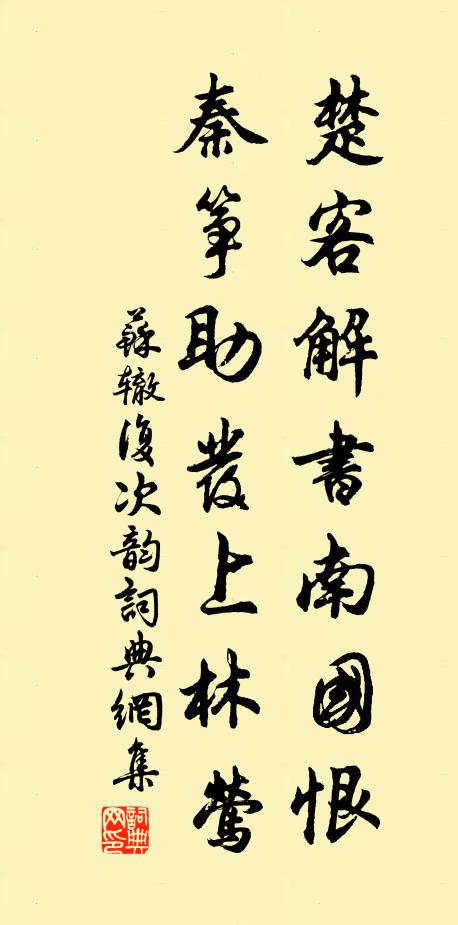 楚客解書南國恨
秦箏助發上林鶯
蘇辙復次韵詞典網集
詞典网印